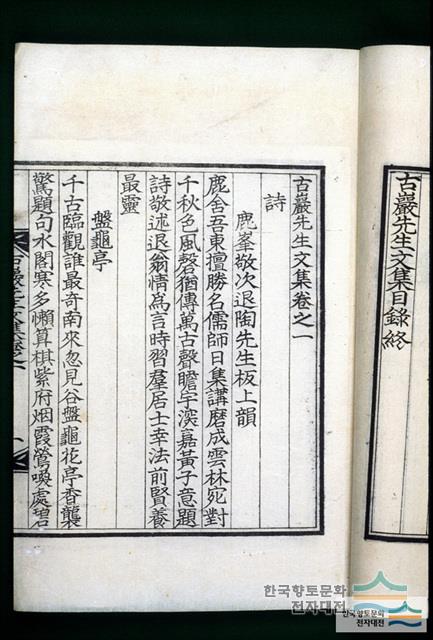 古巖先生文集目錄終
古巖先生文集卷之一
詩
鹿峯敬次退陶先生板上韻
鹿舍吾東擅勝名儒師日集講磨成雲林宛對
千秋色風磬猶傳萬古聲瞻宇深嘉黃子意題
詩敬述退翁情爲言時習羣居士幸法前賢養
最靈
盤龜亭
千古臨觀誰最奇南來忽見谷盤龜花亭香襲
驚題句水閣寒多懶算棋紫府烟霞鶯喚處碧
古巖先生文集卷之一
한국향토문화
전자대전
한국향토문화
전자대전